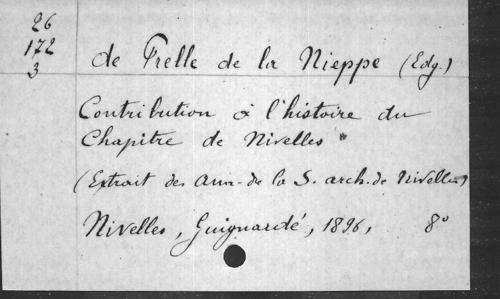 26
172
3
de Prelle de la Nieppe (Edg.)
Contribution à l'histoire du
Chapitre de Nivelles
(Extrait des Ann. de la S. arch. de Nivelles)
Nivelles, Guignardé, 1896, 8°